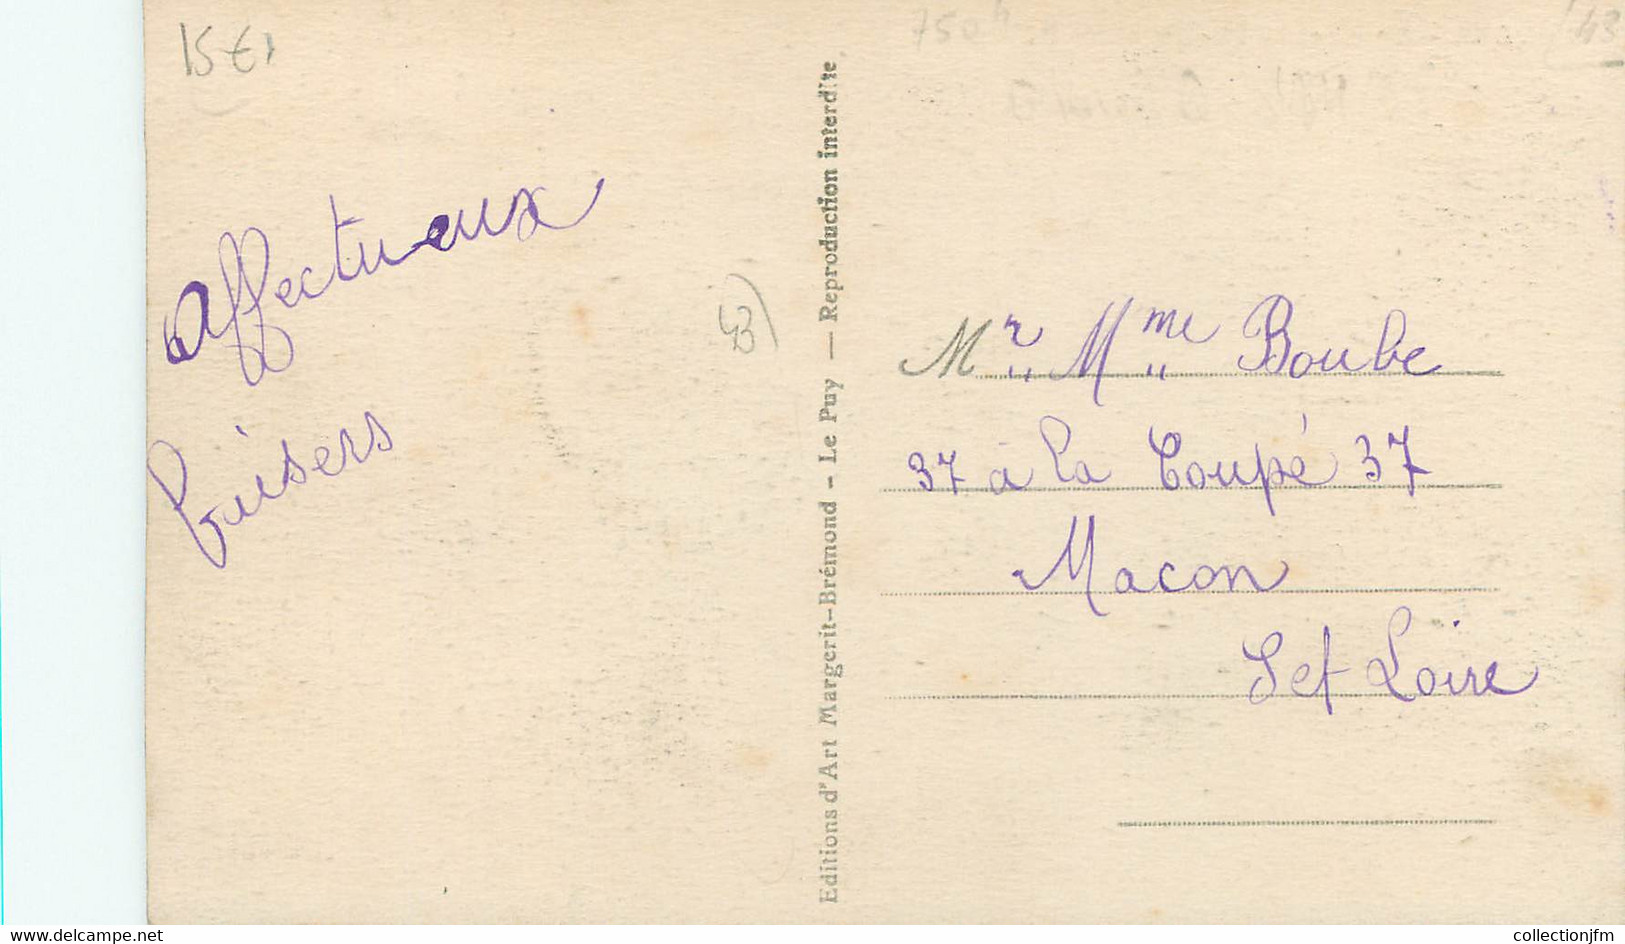 15 €
43
affectueux
baisers
43
Editions d'Art Margerit-Brémond - Le Puy — Reproduction interdite
Mr Mme Boube
37 à la Coupé 37
Macon
S et Loire
www.delcampe.net
collectionjfm